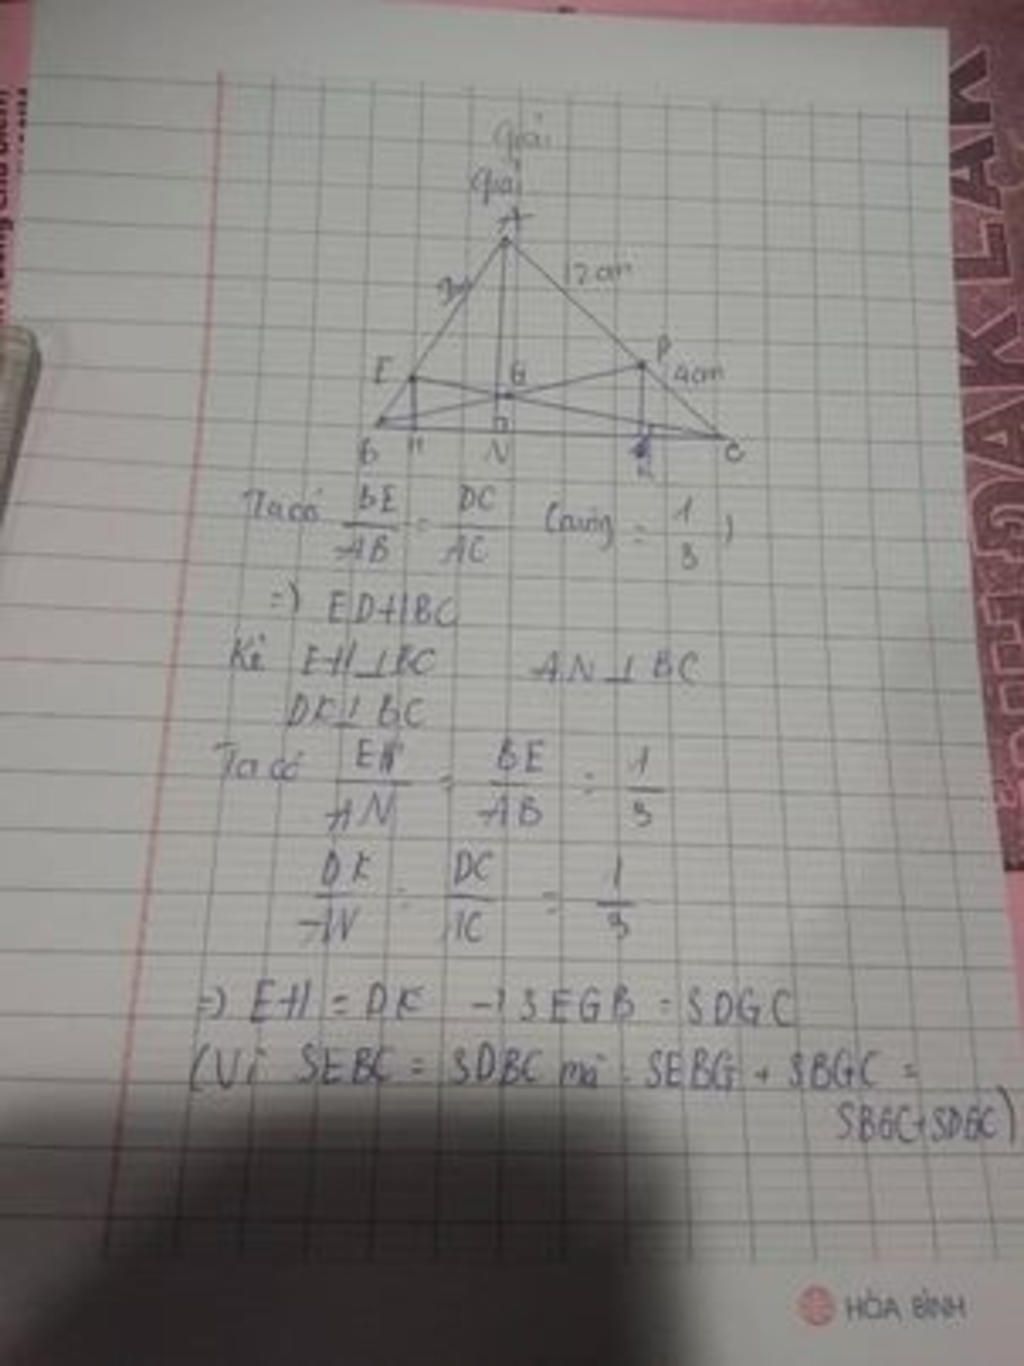 Giải
Giải
A
12cm
E
G
D
4cm
B H N K C
Ta có BE/AB = DC/AC (cùng = 1/3)
=> ED // BC
Kẻ EH ⊥ BC AN ⊥ BC
DK ⊥ BC
Ta có EH/AN = BE/AB = 1/3
DK/AN = DC/AC = 1/3
=> EH = DK → SEGB = SDGC
(Vì SEBC = SDBC mà SEBG + SBGC =
SBGC + SDGC)
HÒA BÌNH
ĐAK LAK